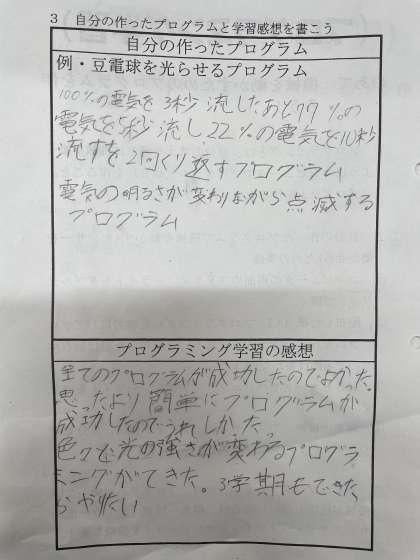 3 自分の作ったプログラムと学習感想を書こう
自分の作ったプログラム
例・豆電球を光らせるプログラム
100%の電気を3秒流したあと77%の
電気を5秒流し22%の電気を10秒
流すを2回くり返すプログラム
電気の明るさが変わりながら点滅する
プログラム
プログラミング学習の感想
全てのプログラムが成功したのでよかった。
思ったより簡単にプログラムが
成功したのでうれしかった。
色々な光の強さが変わるプログラ
ミングができた。3学期もできた
らやりたい